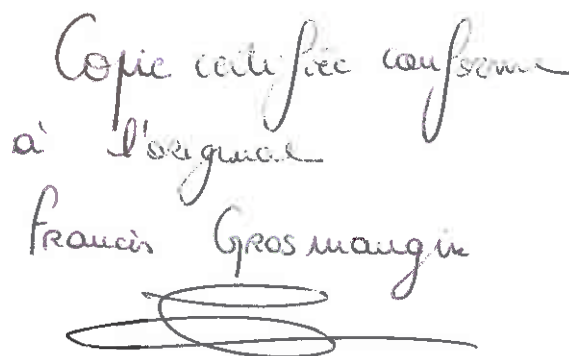 Copie certifiée conforme
à l'original
Francis Grosmangin